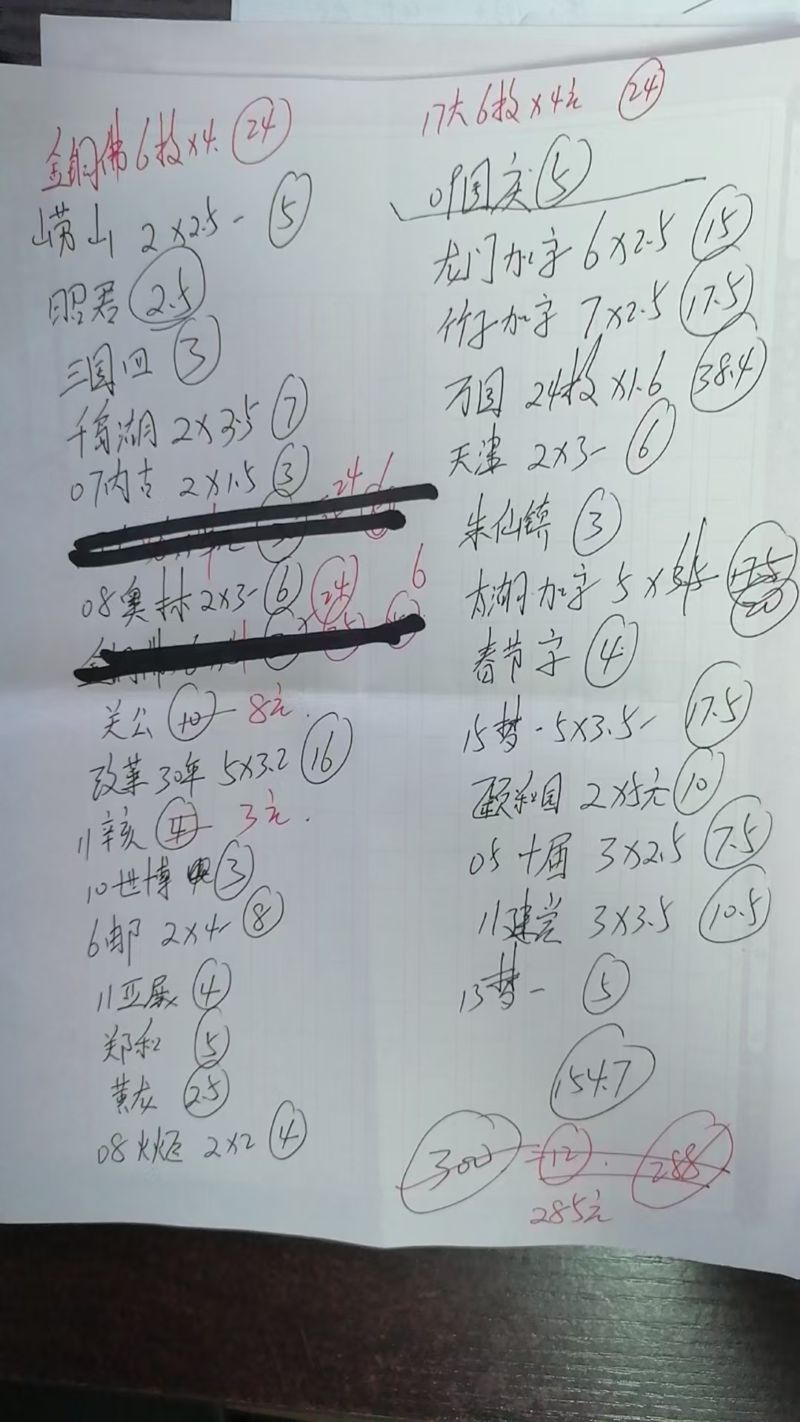 金铜佛6枚×4. 24
崂山 2×2.5- 5
昭君 2.5
三国四 3
千岛湖 2×3.5 7
07内古 2×1.5 3
24 6
08奥林 2×3- 6 24 6
关公 10 8元.
改革30年 5×3.2 16
11辛亥 4 3元.
10世博 3
6邮 2×4- 8
11亚展 4
郑和 5
黄龙 2.5
08火炬 2×2 4
17大6枚×4元 24
09国庆 5
龙门加字 6×2.5 15
竹子加字 7×2.5 17.5
万国 24枚×1.6 38.4
天津 2×3- 6
朱仙镇 3
太湖加字 5×3.5 17.5 20
春节字 4
15梦-5×3.5- 17.5
颐和园 2×5元 10
05十届 3×2.5 7.5
11建党 3×3.5 10.5
13梦- 5
154.7
300 - 12. 288
285元